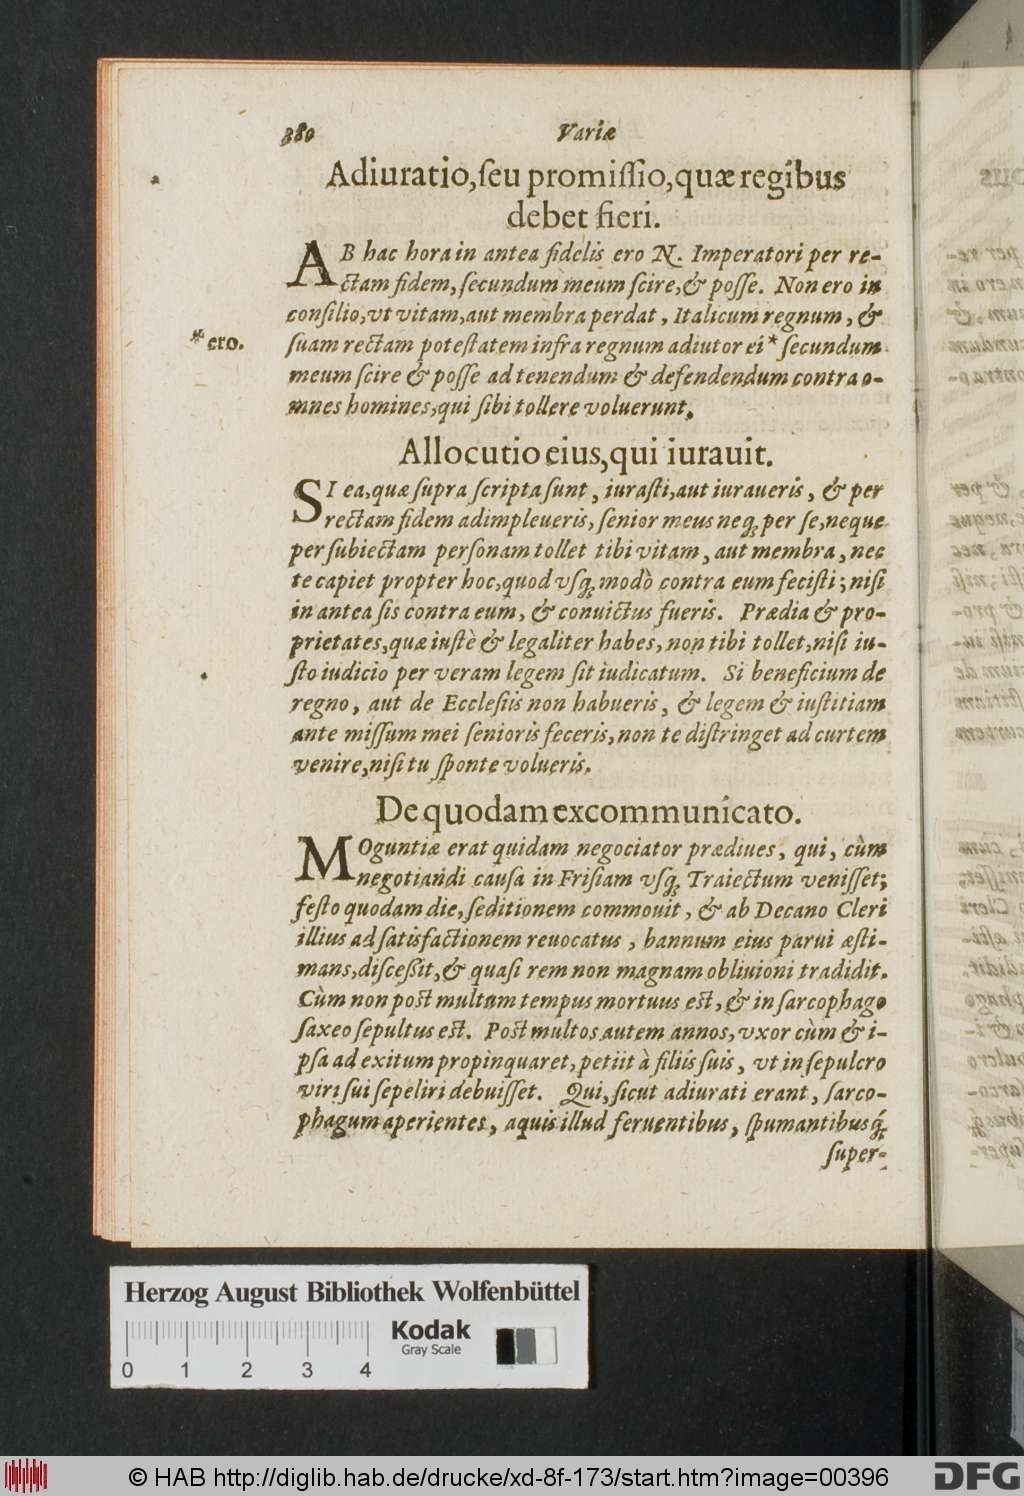 380 Variæ
Adiuratio, ſeu promiſſio, quæ regibus
debet fieri.
AB hac hora in antea fidelis ero N. Imperatori per re-
ctam fidem, ſecundum meum ſcire, & poſſe. Non ero in
conſilio, vt vitam, aut membra perdat, Italicum regnum, &
*ero. ſuam rectam poteſtatem infra regnum adiutor ei* ſecundum
meum ſcire & poſſe ad tenendum & defendendum contra o-
mnes homines, qui ſibi tollere voluerunt.
Allocutio eius, qui iurauit.
SI ea, quæ ſupra ſcripta ſunt, iuraſti, aut iuraueris, & per
rectam fidem adimpleueris, ſenior meus neq; per ſe, neque
per ſubiectam perſonam tollet tibi vitam, aut membra, nec
te capiet propter hoc, quod vſq; modò contra eum feciſti; niſi
in antea ſis contra eum, & conuictus fueris. Prædia & pro-
prietates, quæ iuſtè & legaliter habes, non tibi tollet, niſi iu-
ſto iudicio per veram legem ſit iudicatum. Si beneficium de
regno, aut de Eccleſiis non habueris, & legem & iuſtitiam
ante miſſum mei ſenioris feceris, non te diſtringet ad curtem
venire, niſi tu ſponte volueris.
De quodam excommunicato.
MOguntiæ erat quidam negociator prædiues, qui, cùm
negotiandi cauſa in Friſiam vſq; Traiectum veniſſet;
feſto quodam die, ſeditionem commouit, & ab Decano Cleri
illius ad ſatisfactionem reuocatus, bannum eius parui æſti-
mans, diſceßit, & quaſi rem non magnam obliuioni tradidit.
Cùm non poſt multum tempus mortuus eſt, & in ſarcophago
ſaxeo ſepultus eſt. Poſt multos autem annos, vxor cùm & i-
pſa ad exitum propinquaret, petiit à filiis ſuis, vt in ſepulcro
viri ſui ſepeliri debuiſſet. Qui, ſicut adiurati erant, ſarco-
phagum aperientes, aquis illud feruentibus, ſpumantibusq́;
ſuper-
Herzog August Bibliothek Wolfenbüttel
Kodak
Gray Scale
0 1 2 3 4
© HAB http://diglib.hab.de/drucke/xd-8f-173/start.htm?image=00396
DFG